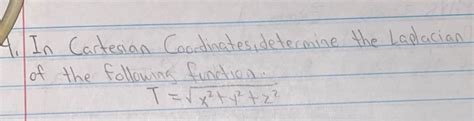 4. In Cartesian Coordinates, determine the Laplacian
of the following function.
T = √x²+y²+z²